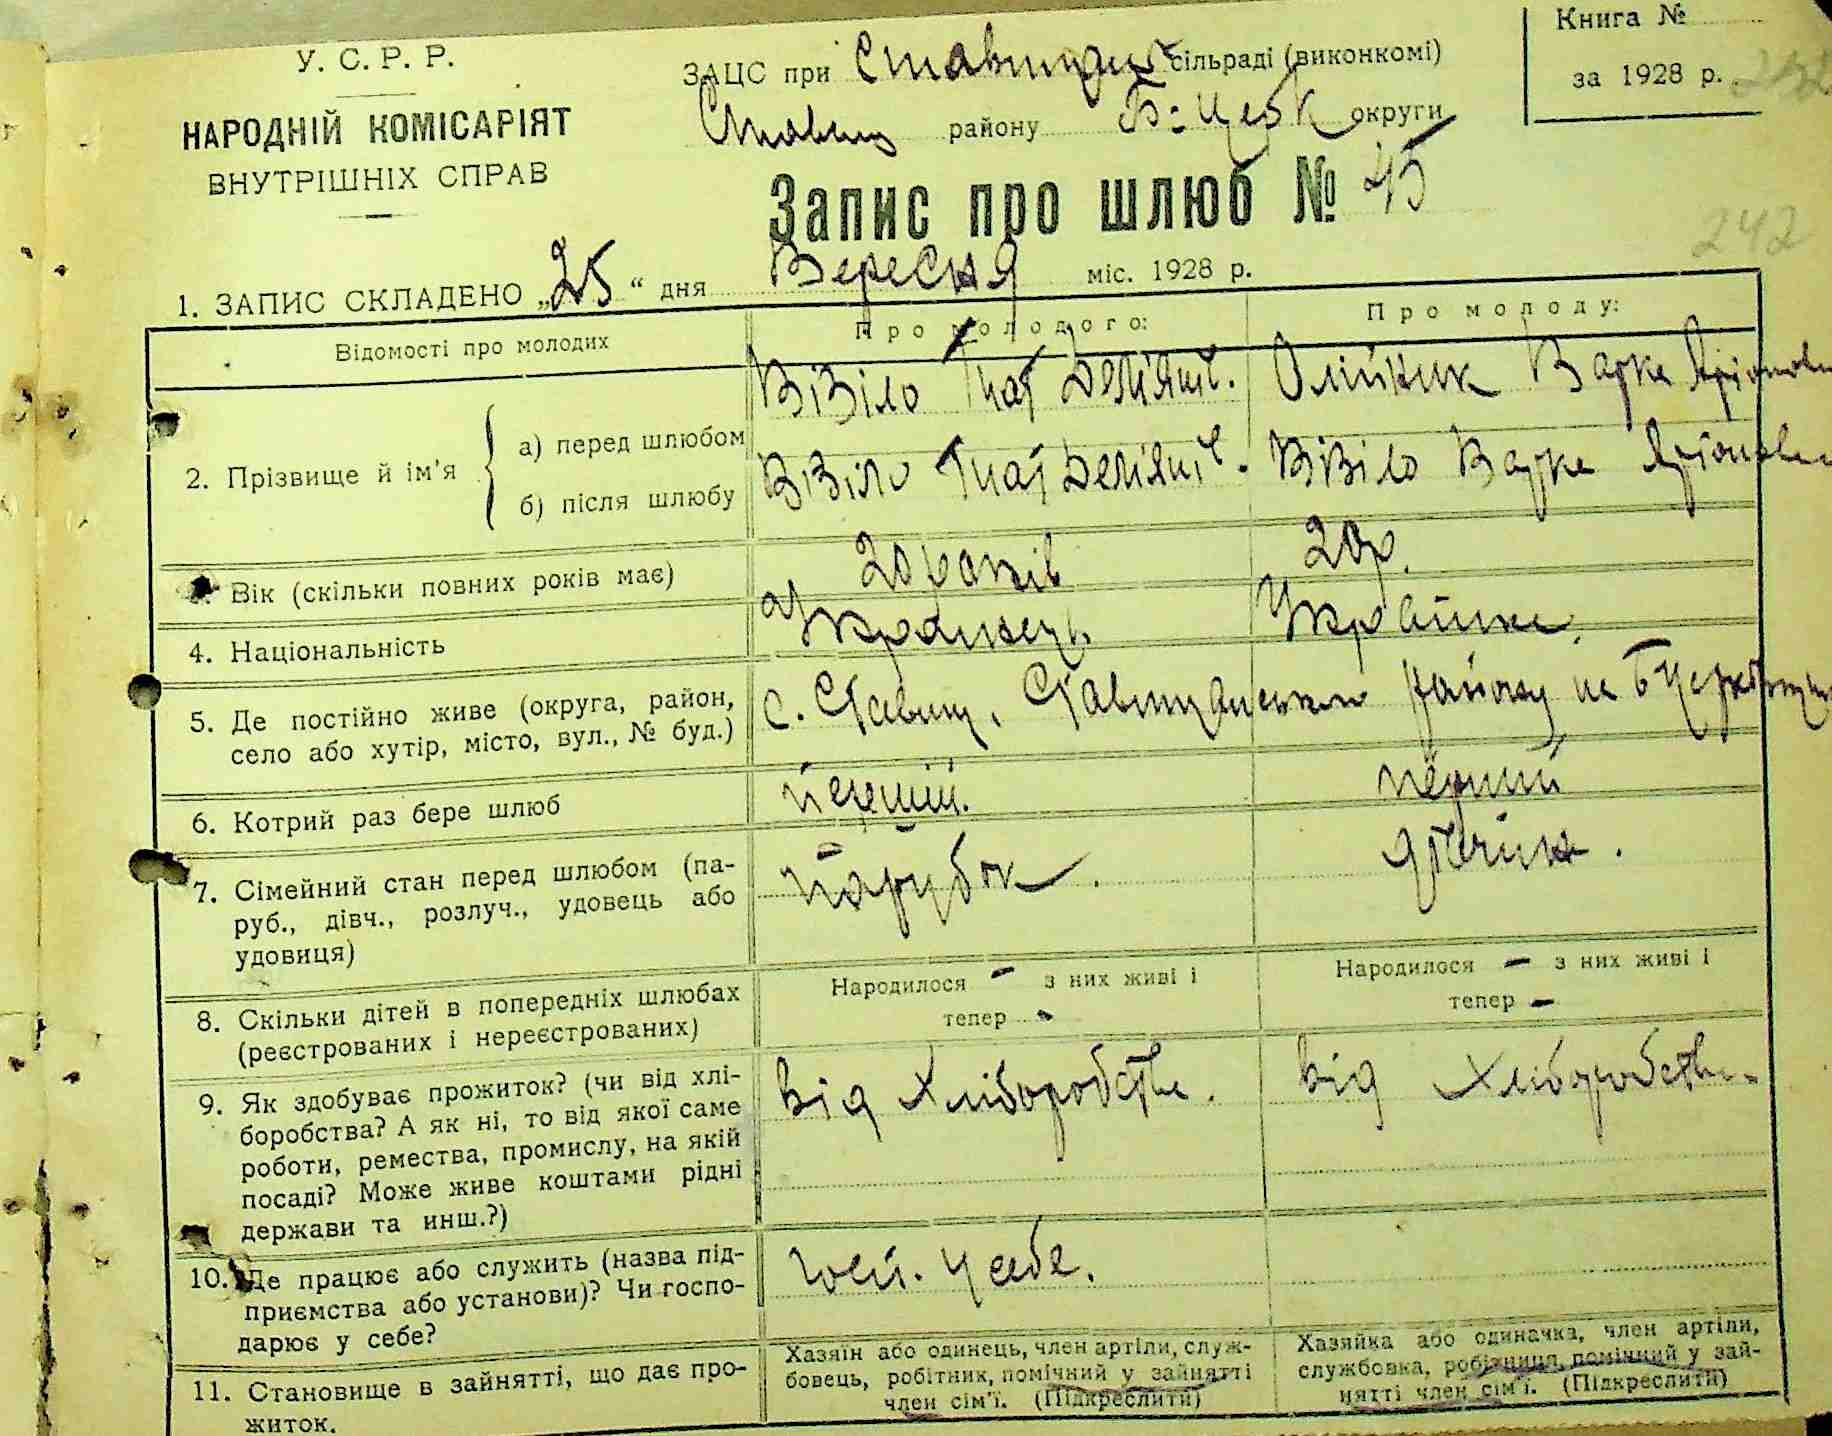 У. С. Р. Р.
НАРОДНІЙ КОМІСАРІЯТ
ВНУТРІШНІХ СПРАВ
ЗАЦС при сільраді (виконкомі)
Ставищ району Б-Церк округи
Книга №
за 1928 р.
242
Запис про шлюб № 45
1. ЗАПИС СКЛАДЕНО „25“ дня Вересня міс. 1928 р.
Відомості про молодих
Про молодого:
Про молоду:
2. Прізвище й ім'я
а) перед шлюбом
Візіло Гнат Демʼянів. Олійник Варка
б) після шлюбу
Візіло Гнат Демʼянів. Візіло Варка
Вік (скільки повних років має)
20 років
20 р.
4. Національність
Українець
Українка
5. Де постійно живе (округа, район,
село або хутір, місто, вул., № буд.)
с. Ставищ, району на
6. Котрий раз бере шлюб
перший.
перший
7. Сімейний стан перед шлюбом (па-
руб., дівч., розлуч., удовець або
удовиця)
парубок.
дівчина.
8. Скільки дітей в попередніх шлюбах
(реєстрованих і нереєстрованих)
Народилося – з них живі і
тепер -
Народилося – з них живі і
тепер –
9. Як здобуває прожиток? (чи від хлі-
боробства? А як ні, то від якої саме
роботи, ремества, промислу, на якій
посаді? Може живе коштами рідні
держави та инш.?)
від хліборобства.
від хліборобства.
10. Де працює або служить (назва під-
приємства або установи)? Чи госпо-
дарює у себе?
у себе.
11. Становище в зайнятті, що дає про-
житок.
Хазяїн або одинець, член артіли, служ-
бовець, робітник, помічний у зайнятті
член сім'ї. (Підкреслити)
Хазяйка або одиначка, член артіли,
службовка, робітниця, помічний у зай-
нятті член сім'ї. (Підкреслити)